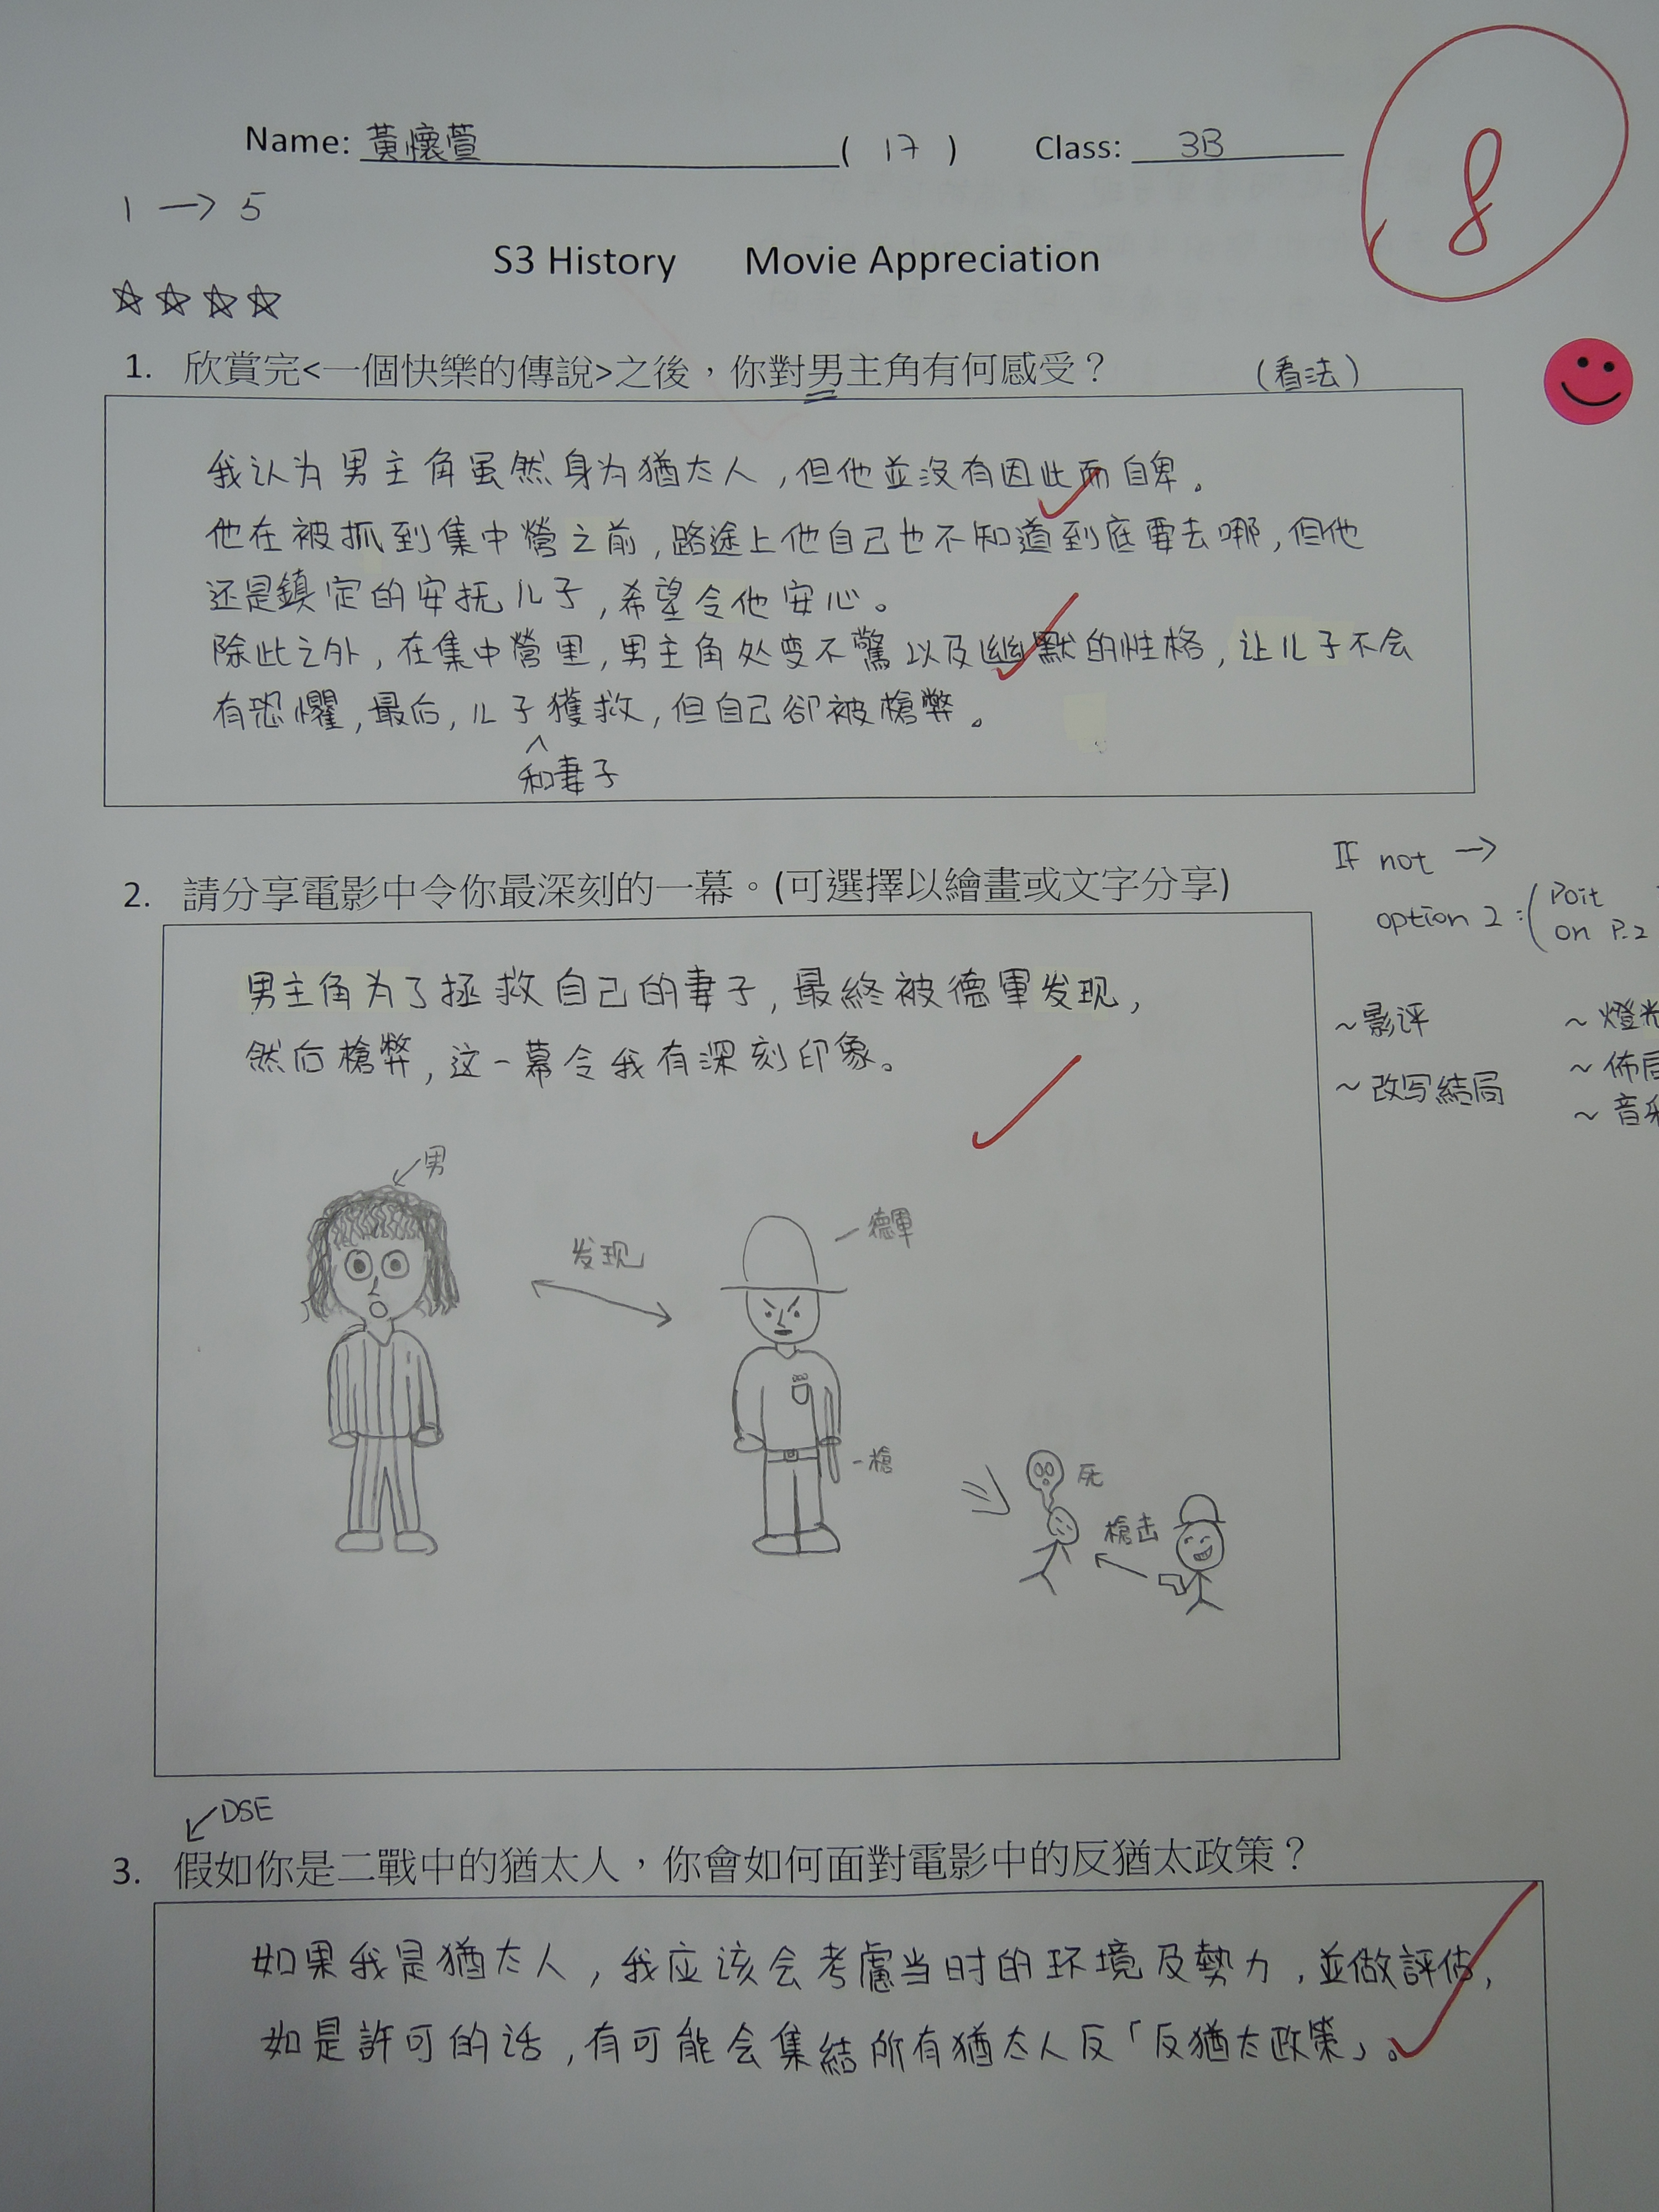 Name: 黃懷萱 ( 17 ) Class: 3B
8
1 → 5
S3 History Movie Appreciation
☆☆☆☆
1. 欣賞完<一個快樂的傳說>之後，你對男主角有何感受？ (看法)
我认为男主角虽然身为猶太人，但他並沒有因此而自卑。
他在被抓到集中營之前，路途上他自己也不知道到底要去哪，但他
还是鎮定的安抚儿子，希望令他安心。
除此之外，在集中營里，男主角处变不驚以及幽默的性格，让儿子不会
有恐懼，最后，儿子獲救，但自己卻被槍弊。
^
和妻子
2. 請分享電影中令你最深刻的一幕。(可選擇以繪畫或文字分享)
If not →
option 2 : ( Poit
on P.2
~影评
~改写結局
~燈光
~佈局
~音
男主角为了拯救自己的妻子，最終被德軍发现，
然后槍弊，这一幕令我有深刻印象。
男
发现
德軍
槍
死
槍击
DSE
3. 假如你是二戰中的猶太人，你會如何面對電影中的反猶太政策？
如果我是猶太人，我应该会考慮当时的环境及勢力，並做評估，
如是許可的话，有可能会集結所有猶太人反「反猶太政策」。